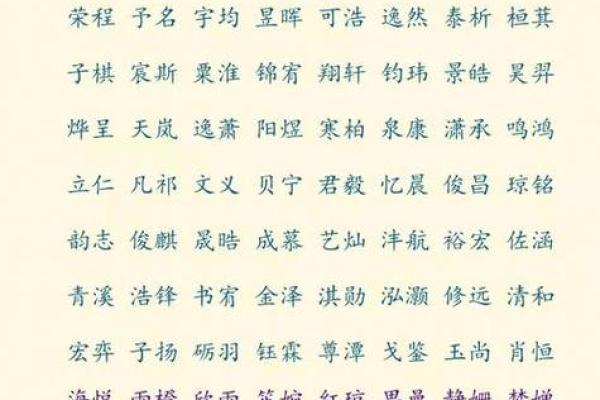 荣程 予名 宇均 昱晖 可浩 逸然 泰析 桓萁
子棋 宸斯 粟淮 锦宥 翔轩 钧玮 景皓 昊羿
烨呈 天岚 逸萧 阳煜 寒柏 泉康 潇承 鸣鸿
立仁 凡祁 文义 贝宁 君毅 忆晨 俊昌 琼铭
韵志 俊麒 晟晧 成慕 艺灿 沣航 裕宏 佐涵
青溪 浩锋 书宥 金泽 淇勋 泓灏 修远 清和
宏弈 子扬 砺羽 钰霖 尊潭 戈鉴 玉尚 肖恒